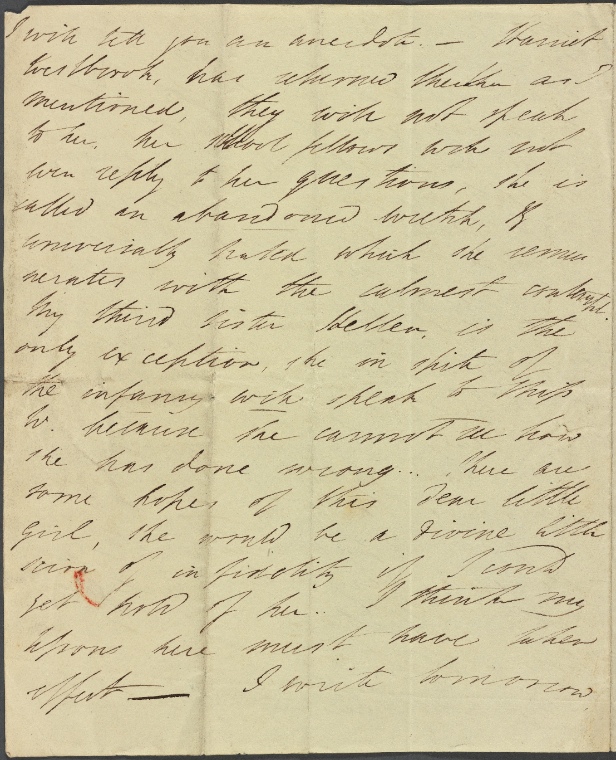 I will tell you an anecdote. — Harriet
Westbrook, has returned thither as I
mentioned, they will not speak
to her, her school fellows will not
even reply to her questions, she is
called an abandoned wretch, &
universally hated which she remu
nerates with the calmest contempt.
My third sister Hellen, is the
only exception, she in spite of
the infamy will speak to Miss
W. because she cannot see how
she has done wrong.. There are
some hopes of this dear little
girl, she would be a divine little
scion of infidelity if I could
get hold of her.. I think my
lessons here must have taken
effect — I write tomorrow